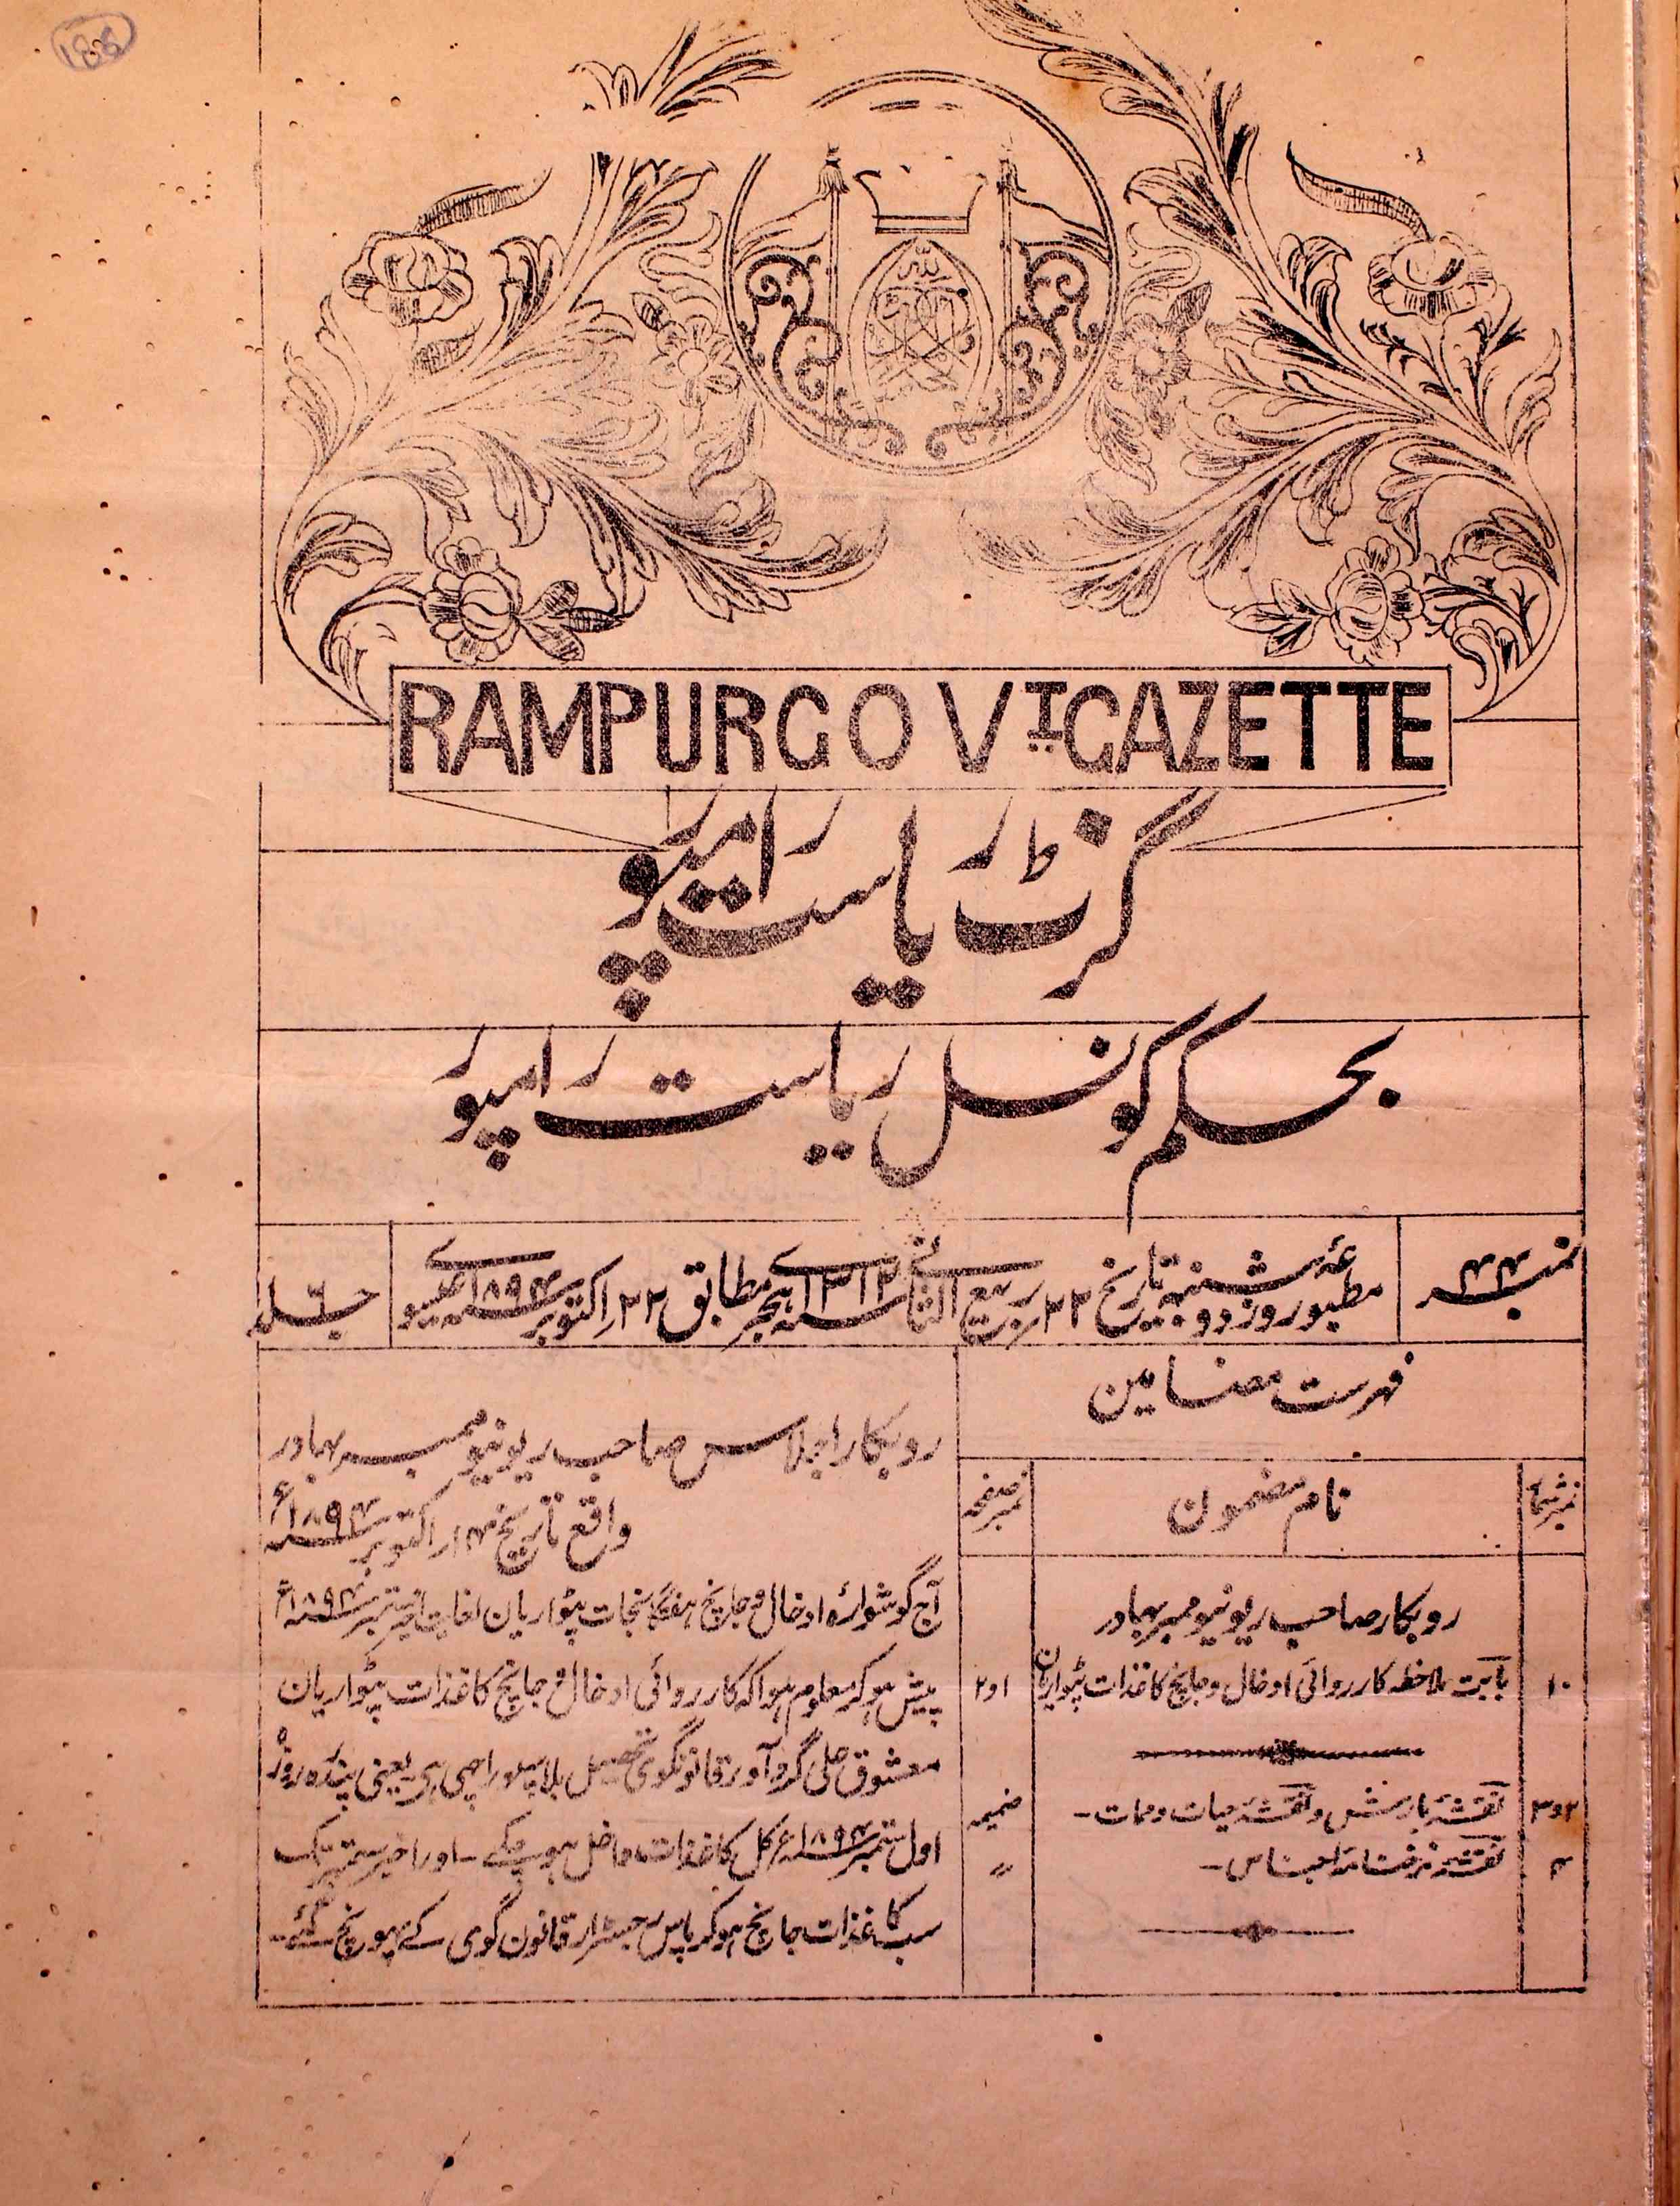 188
RAMPUR GOVT GAZETTE
گزٹ ریاست رامپور
بحکم کونسل ریاست رامپور
نمبر ۴۴
مطبوعہ روز دوشنبہ تاریخ ۲۲ ربیع الثانی سنہ ۱۳۱۲ ہجری مطابق ۲۲ اکتوبر سنہ ۱۸۹۴ عیسوی
جلد ۶
فہرست مضامین
نمبر شمار
نام مضمون
نمبر صفحہ
روبکار صاحب ریونیو ممبر بہادر
۱۰
بابت ملاحظہ کارروائی ادخال و جانچ کاغذات پٹواریان
۱و۲
۲و۳
نقشہ بارش و نقشہ حیات و ممات-
ضمیمہ
۴
نقشہ نرخنامہ اجناس-
"
روبکار اجلاس صاحب ریونیو ممبر بہادر
واقع تاریخ ۱۴ اکتوبر سنہ ۱۸۹۴ء
آج گوشوارہ ادخال و جانچ پٹواریان لغایت ستمبر سنہ ۱۸۹۴ء
پیش ہو کر معلوم ہوا کہ کارروائی ادخال و جانچ کاغذات پٹواریان
معشوق علی گرد آور قانونگوی تحصیل بلاسپور اچھی ہی یعنی پندرہ روز
اول ستمبر سنہ ۱۸۹۴ء کل کاغذات داخل ہو چکے - اور اخیر ستمبر تک
سب کاغذات جانچ ہو کر پاس رجسٹرار قانون گوی کے پہونچ گئے-